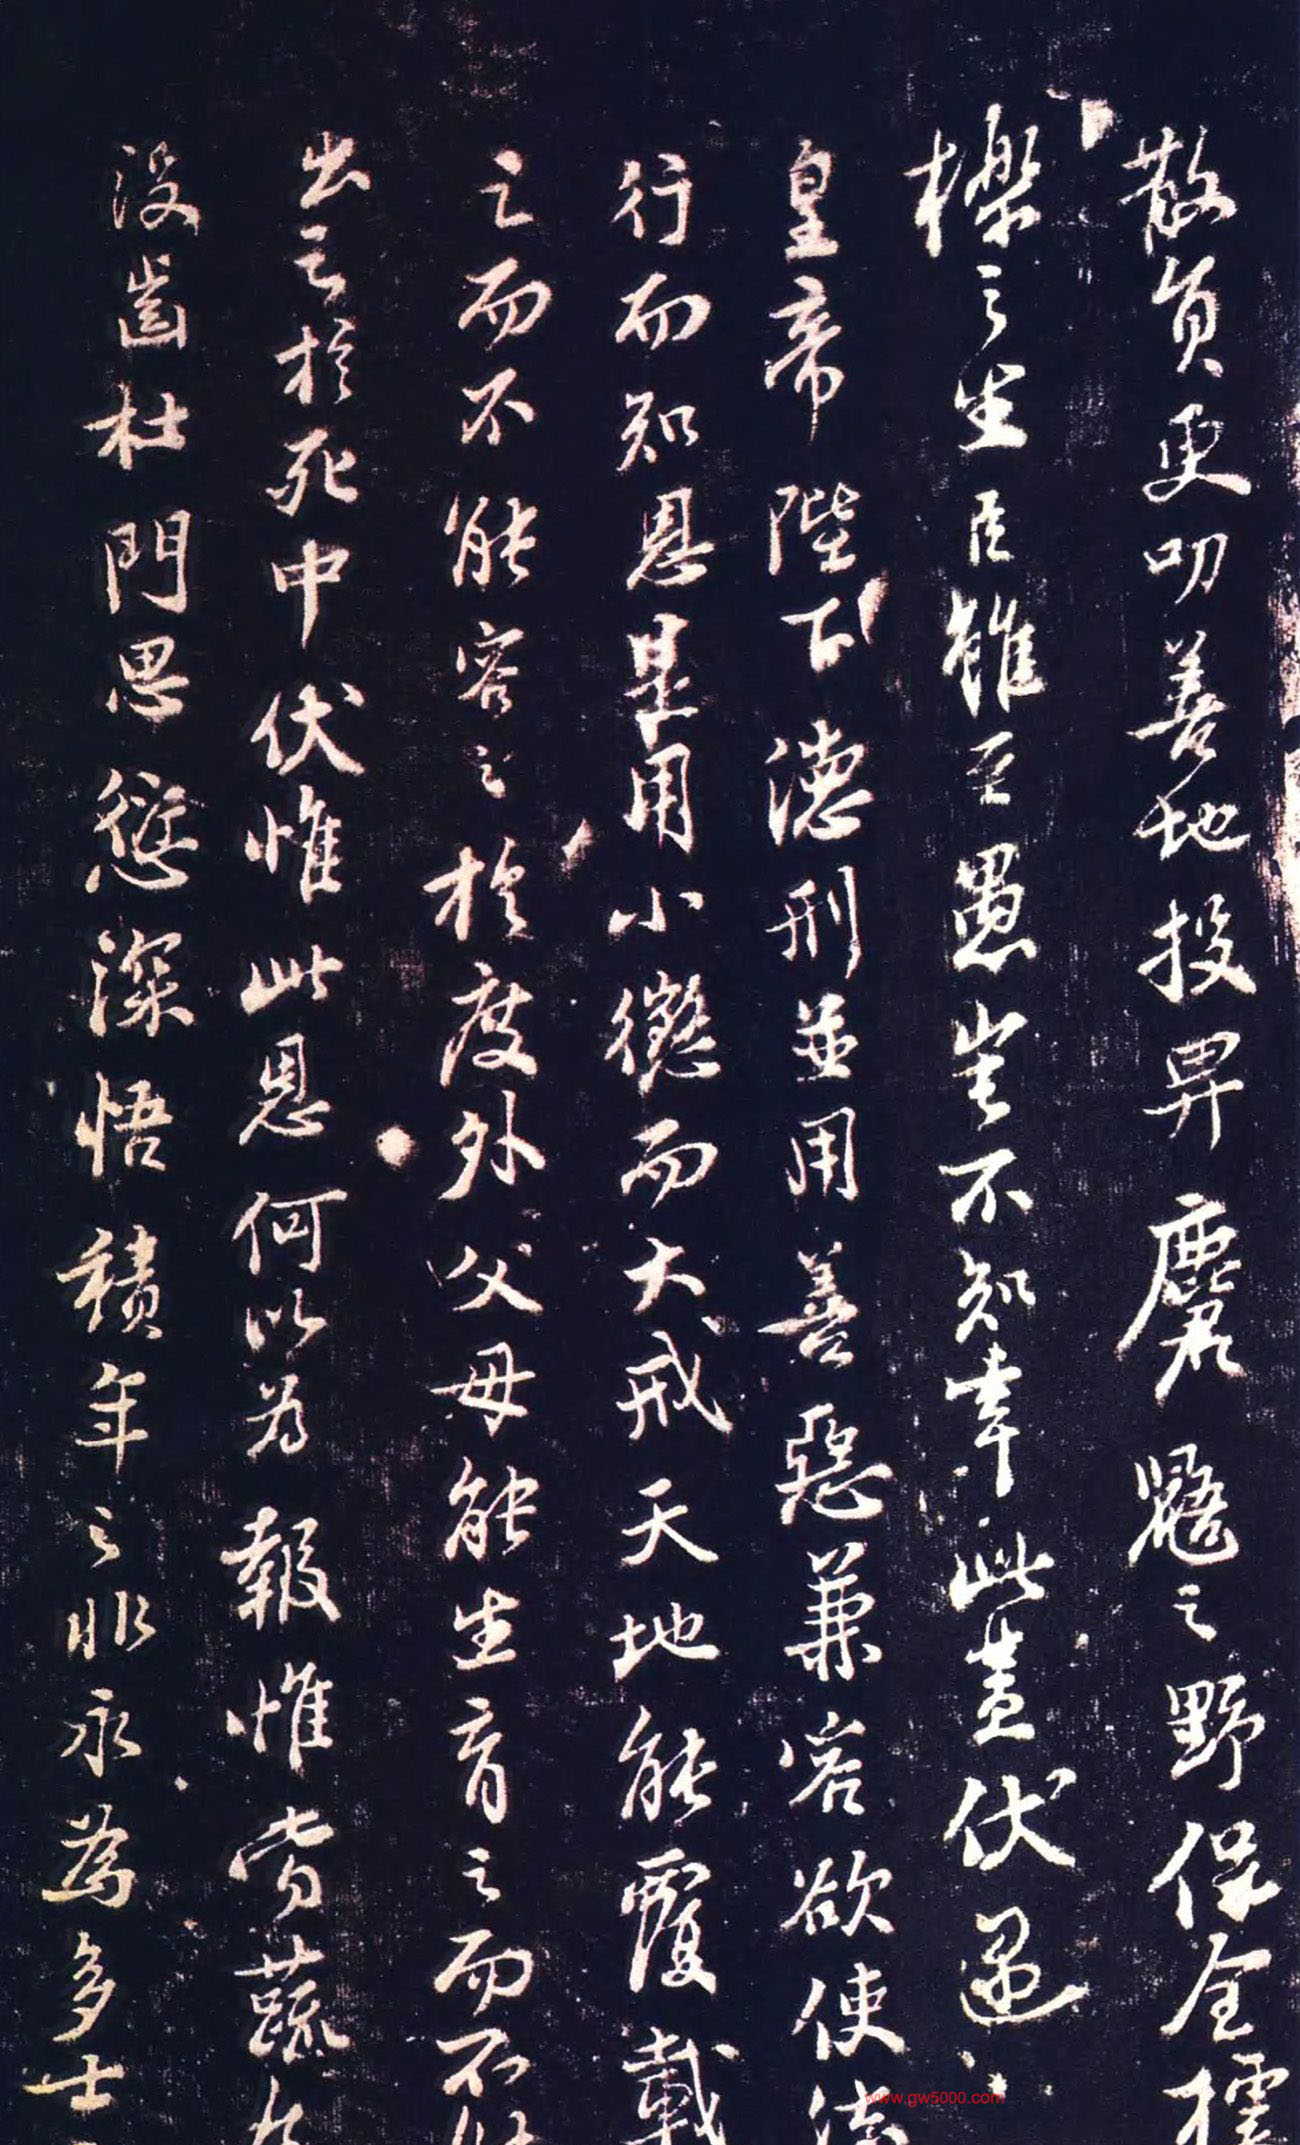 散員更叨善地投畀麏鼯之野保全樗
櫟之生臣雖至愚豈不知幸此蓋伏遇
皇帝陛下德刑並用善惡兼容欲使法
行而知恩是用小懲而大戒天地能覆載
之而不能容之於度外父母能生育之而不能
出之於死中伏惟此恩何以為報惟當蔬食
沒齒杜門思愆深悟積年之非永為多士
www.gw5000.com